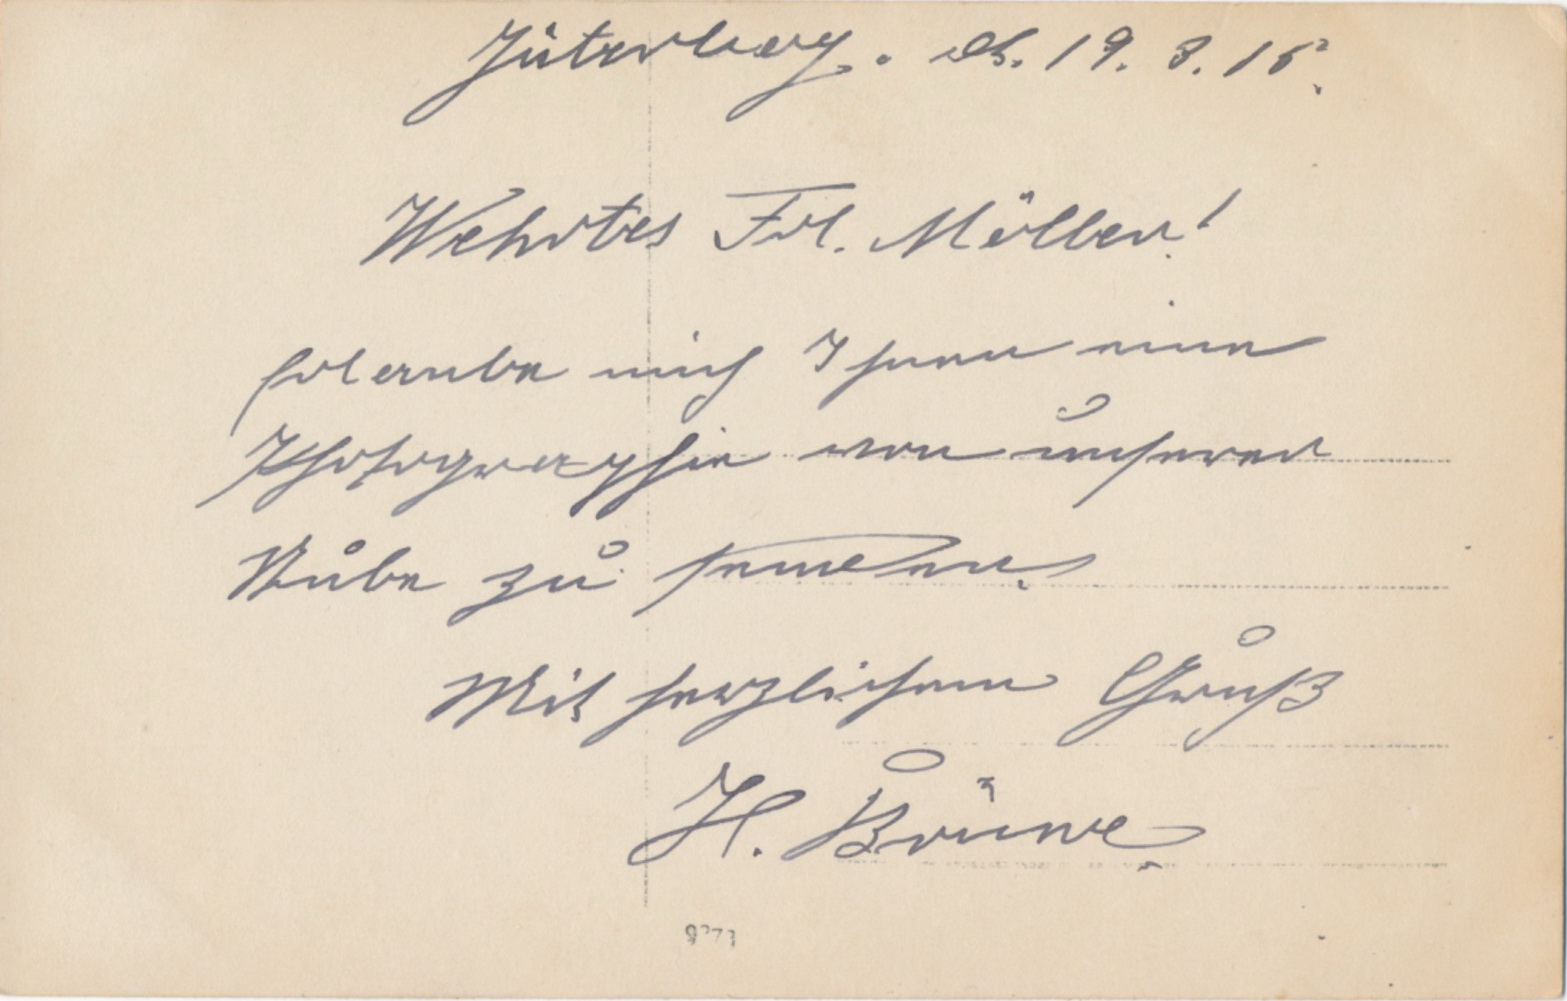 Jüterbog. d. 19. 8. 15.
Wehrtes Frl. Möller!
Erlaube mich Ihnen eine
Photographie von unserer
Stube zu senden.
Mit herzlichem Gruß
H. Brüne